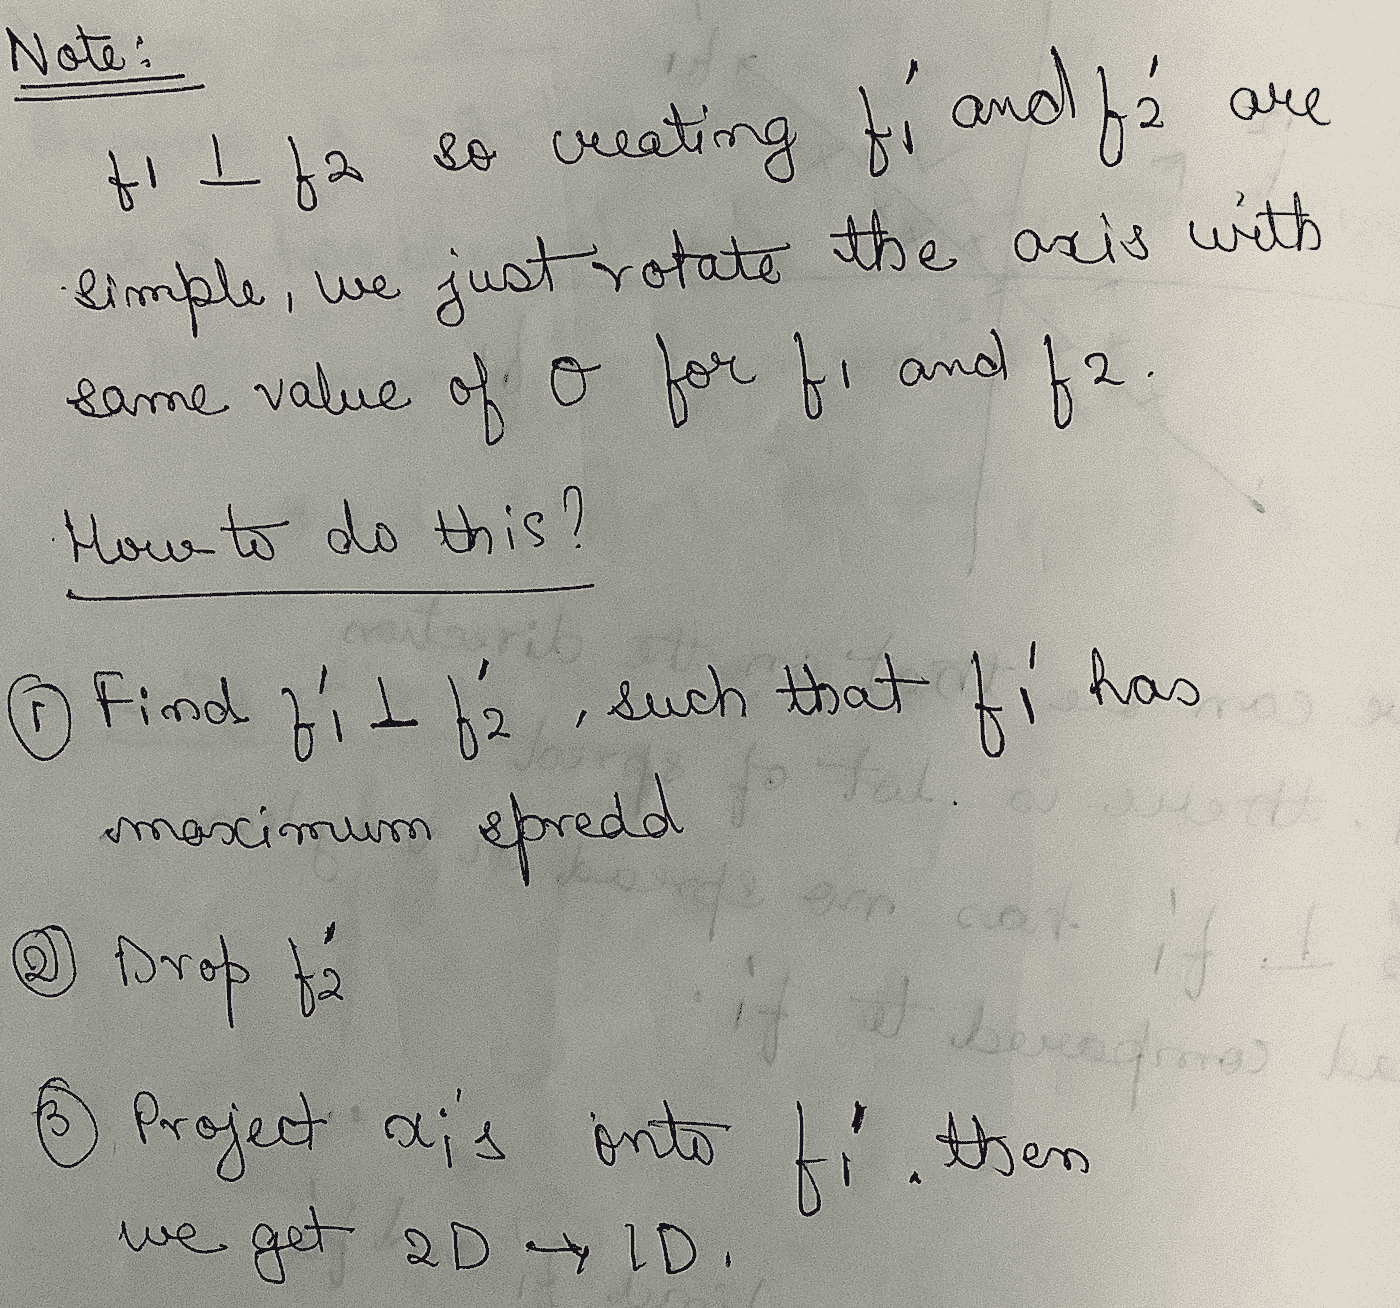 Note:
f1 ⊥ f2 so creating f1' and f2' are
simple, we just rotate the axis with
same value of θ for f1 and f2.
How to do this?
① Find f1' ⊥ f2', such that f1' has
maximum spredd
② Drop f2'
③ Project xi's onto f1'. then
we get 2D → 1D.